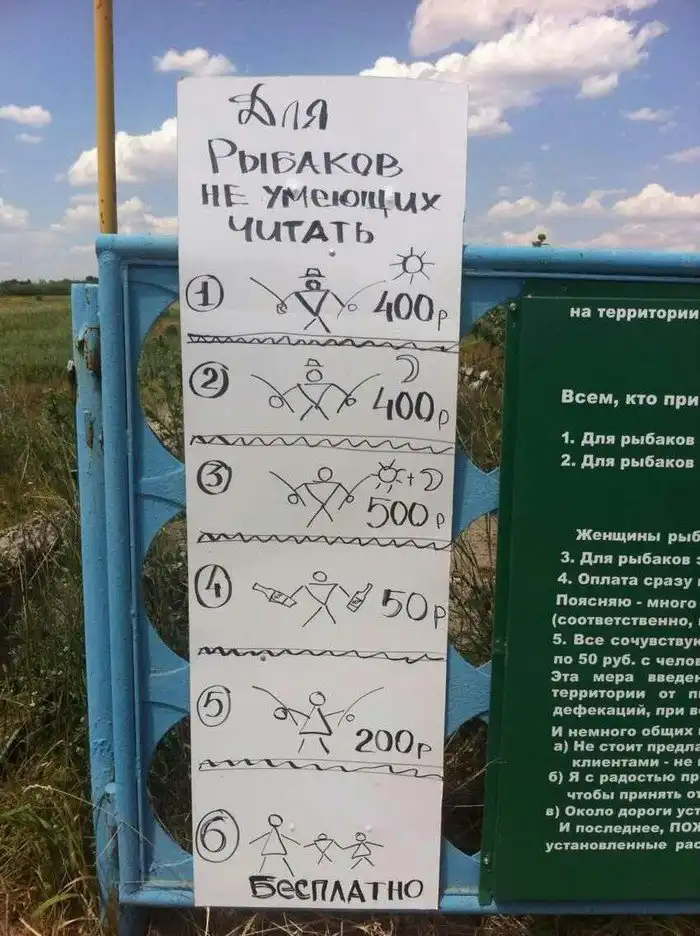 Для
Рыбаков
не умеющих
читать
1 400р
2 400р
3 + 500р
4 50р
5 200р
6
Бесплатно
на территории
Всем, кто
1. Для рыбаков
2. Для рыбаков
Женщины
3. Для рыбаков
4. Оплата сразу
Поясняю - много
(соответственно,
5. Все
по 50 руб. с
Эта мера
территории от
дефекаций, при
И немного общих
а) Не стоит
клиентами - не
б) Я с радостью
чтобы принять
в) Около дороги
И последнее,
установленные